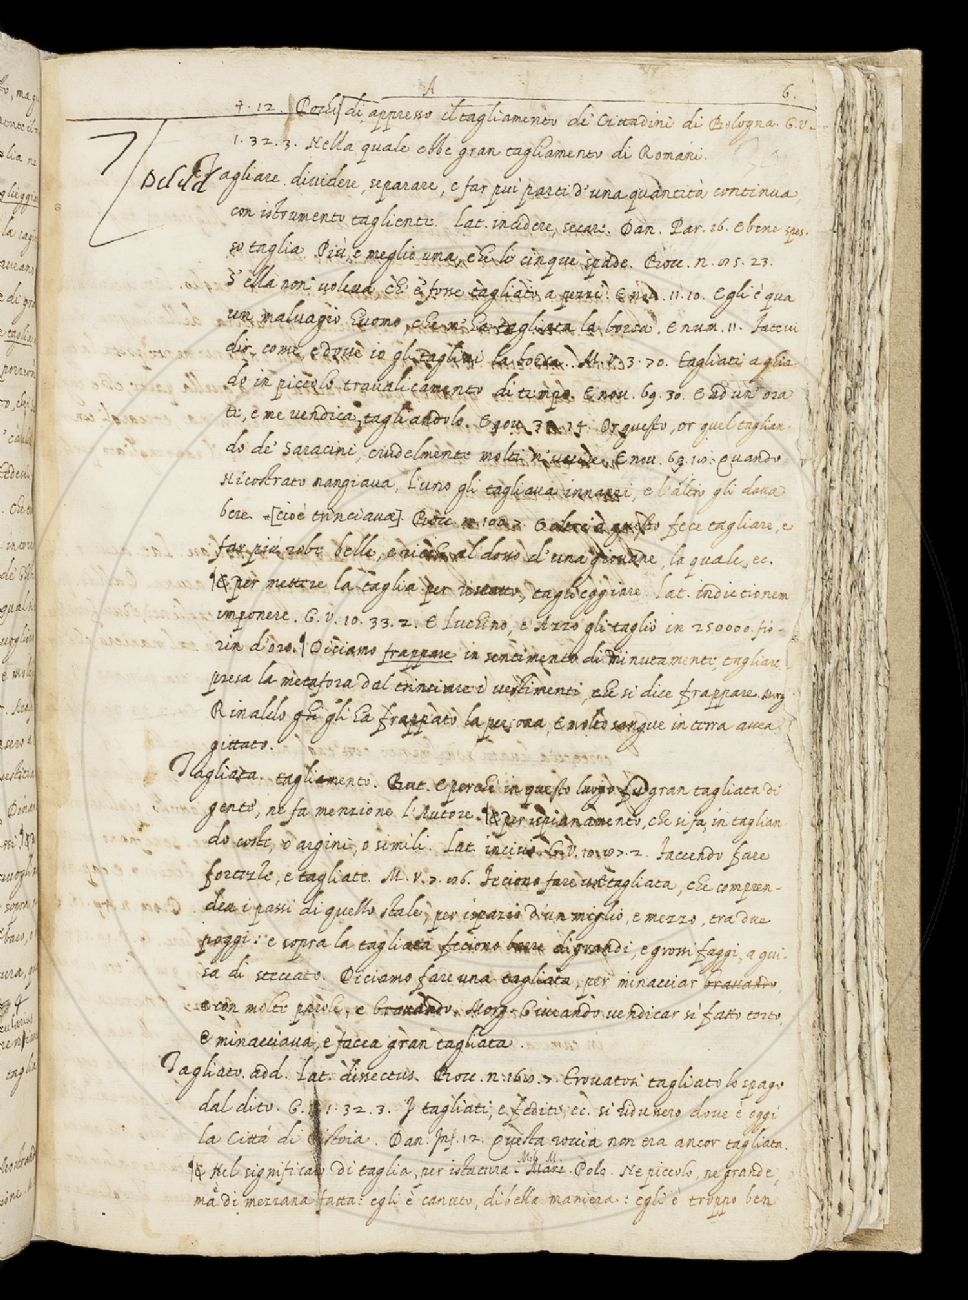 A 6.
4. 12. [Bocc.] di, appresso il tagliamento de' Cittadini di Bologna. G. V.
1. 32. 3. Nella quale ebbe gran tagliamento di Romani.
Tagliare. dividere, separare, e far più parti d'una quantità continua,
con istrumento tagliente. Lat. incidere, secare. Dan. Par. 16. E bene spes-
so taglia Più, e meglio una, che le cinque spade. Bocc. n. 15. 23.
S'ella non voleva, ch'e' fosse tagliato a pezzi. E nov. 11. 10. Egli è qua
un malvagio huomo, che m'ha tagliata la borsa. E num. 11. Facevi
dir, come, e dove io gli tagliai la borsa. M. V. 3. 70. Tagliati a ghia
do in piccolo travalicamento di tempo. E nov. 69. 30. E ad un'ora
te, e me vendica, tagliandolo. E nov. 14. Or questo, or quel taglian
do de' Saracini, crudelmente molti n'uccise. E nov. 69. 10. Quando
Nicostrato mangiava, l'uno gli tagliava innanzi, e l'altro gli dava
bere. [cioè trinciava]. Bocc. n. 100. 7. E oltre a questo fece tagliare, e
far più robe belle, e ricche al dosso d'una giovane, la quale, ec.
¶ & per mettere la taglia per riscatto, taglieggiare. Lat. indictionem
imponere. G. V. 10. 33. 2. E Luchino, e Azzo gli tagliò in 250000. fio-
rin d'oro. ¶ Diciamo frappare in sentimento di minutamente tagliare,
presa la metafora dal trinciare i vestimenti, che si dice frappare. Morg.
Rinaldo gli ha frappato la persona, E molto sangue in terra avea
gittato.
Tagliata. tagliamento. But. E perchè in questo luogo fu gran tagliata di
gente, ne fa menzione l'Autore. ¶ & per ispianamento, che si fa, in taglian
do coste, o argini, o simili. Lat. incisio. G. V. 10. 7. 2. Facendo fare
fortezze, e tagliate. M. V. 7. Feciono fare una tagliata, che compren-
dea i passi di quelle scale, per ispazio d'un miglio, e mezzo, tra due
poggi: e sopra la tagliata feciono barre di grandi, e grossi faggi, a gui-
sa di steccato. Diciamo fare una tagliata, per minacciar bravando,
e con molte parole, e bravando. Morg. Giurando vendicar sì fatto torto
E minacciava, e facea gran tagliata.
Tagliato. add. Lat. dissectus. Bocc. n. 7. Trovatosi tagliato lo spago
dal dito. G. V. 1. 32. 3. I tagliati, e fediti, ec. si ridussero dove è oggi
la Città di Pistoia. Dan. Inf. 12. Questa roccia non era ancor tagliata.
¶ & Nel significato di taglia, per istatura. Mil. M. Polo. Ne piccolo, ne grande,
mà di mezzana fatta: egli è canuto, di bella maniera: egli è troppo ben